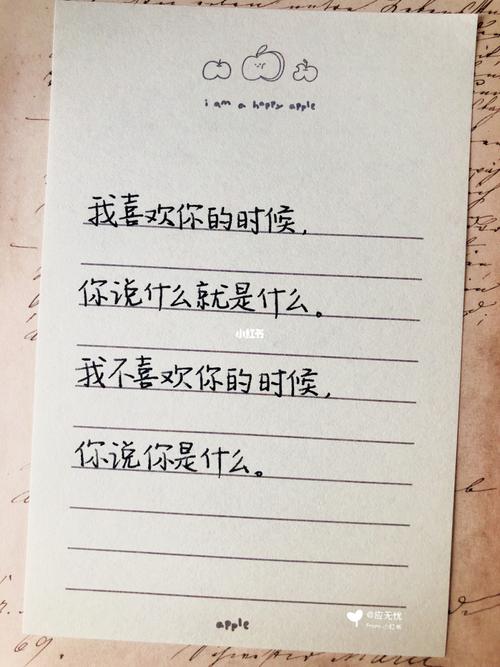 i am a happy apple
我喜欢你的时候,
你说什么就是什么。
小红书
我不喜欢你的时候,
你说你是什么。
apple
@应无忧
From 小红书
69.